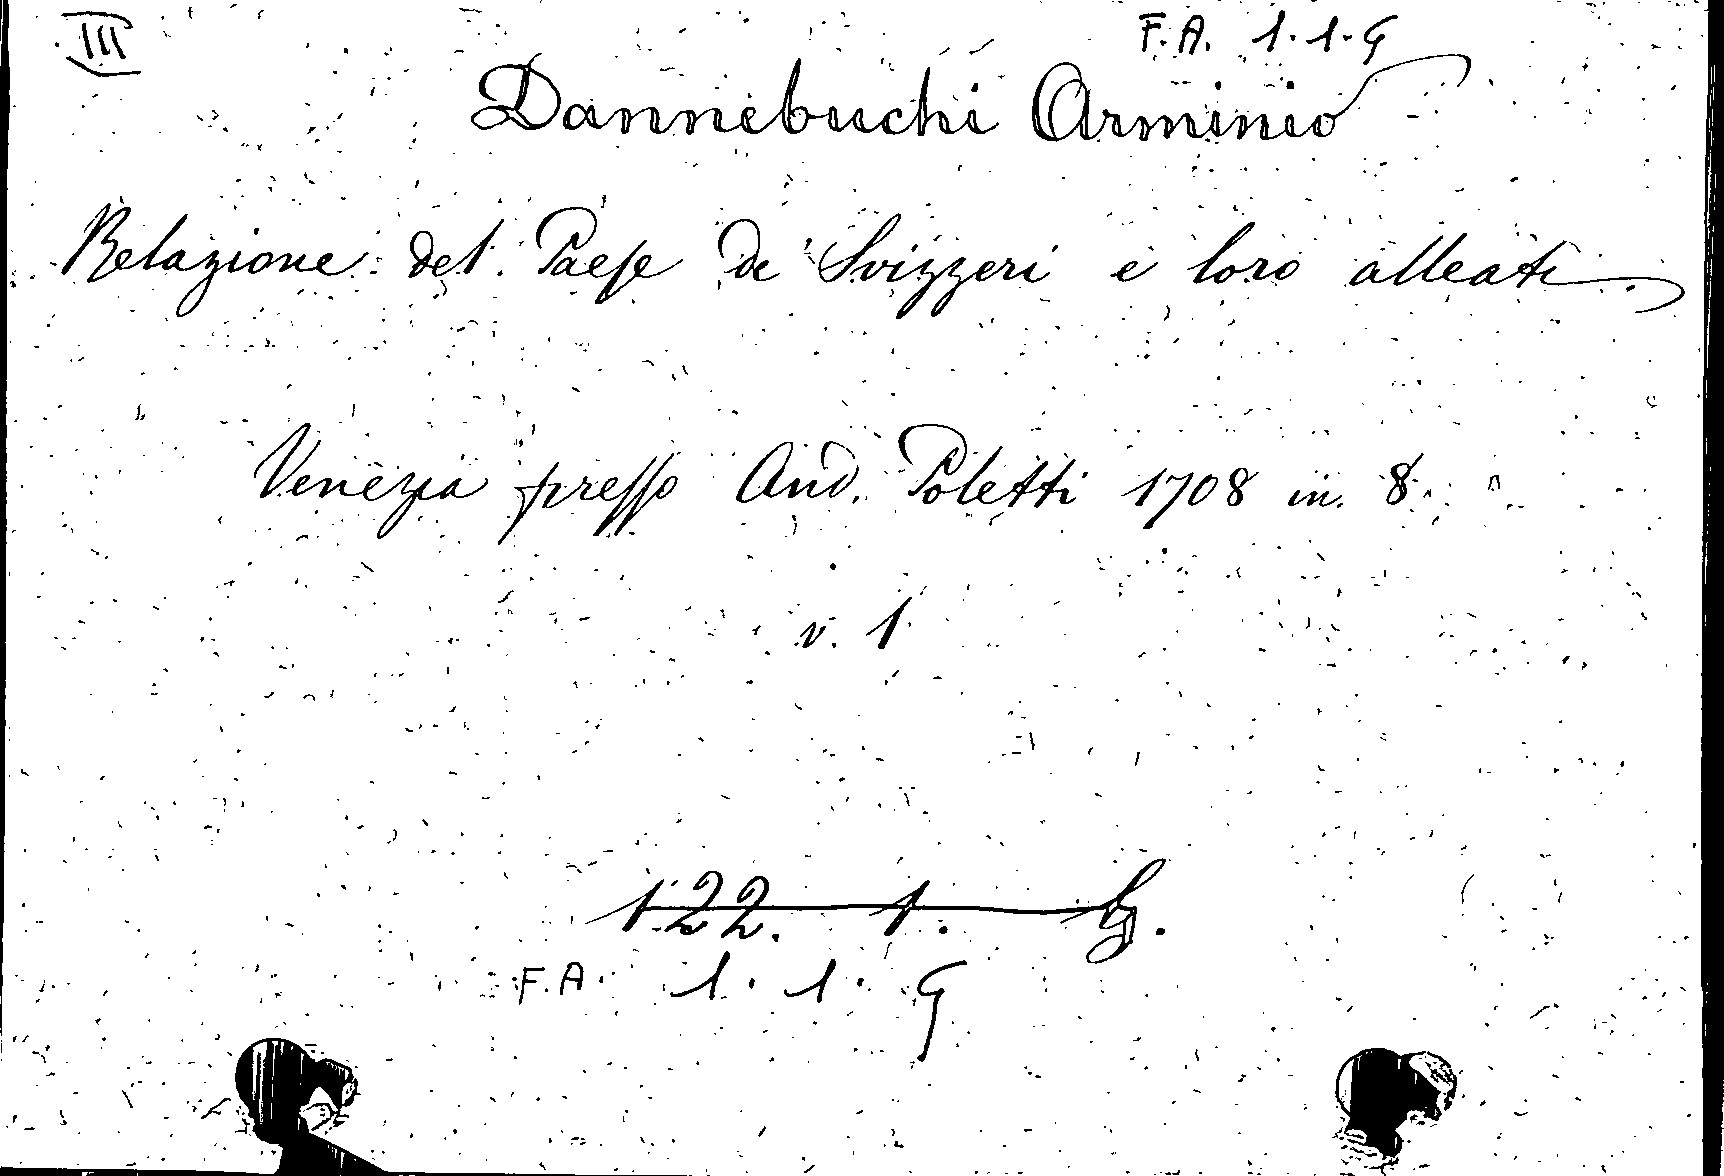 III
F.A. 1.1.G
Dannebuchi Arminio
Relazione del Paese de Svizzeri e loro alleati.
Venezia presso And. Poletti 1708 in 8.
v. 1
122. 1. G.
F.A. 1.1.G